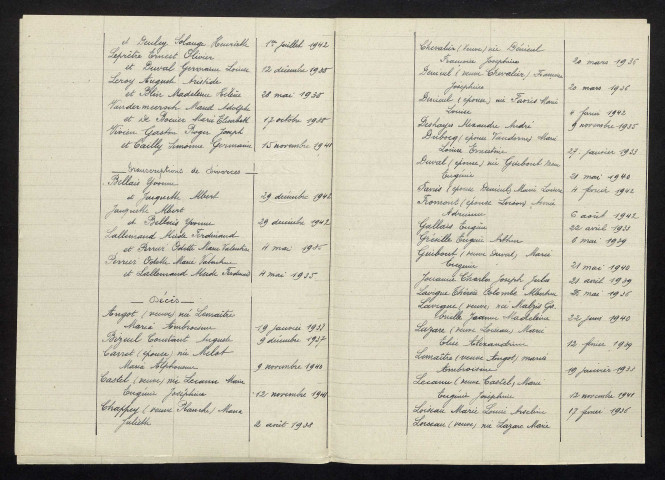 et Deuley Solange Henriette 1er juillet 1942
Leprêtre Ernest Olivier
et Duval Germaine Louise 12 décembre 1935
Leroy Auguste Aristide
et Blin Madeleine Hélène 28 mai 1938
Vandermeersch Maud Adolphe
et De Boever Marie Elisabeth 17 octobre 1935
Vivien Gaston Roger Joseph
et Cailly Simonne Germaine 15 novembre 1941
Transcriptions de Divorces
Bellais Yvonne
et Jacquette Albert 29 décembre 1942
Jacquette Albert
et Bellais Yvonne 29 décembre 1942
Lallemand Alcide Ferdinand
et Perrier Odette Marie Valentine 4 mai 1935
Perrier Odette Marie Valentine
et Lallemand Alcide Ferdinand 4 mai 1935
Décès
Angot (veuve) née Lemaître
Maria Ambroisine 19 janvier 1938
Bizeul Constant Auguste 9 décembre 1937
Carrel (épouse) née Melot
Marie Alphonsine 9 novembre 1940
Castel (veuve) née Lecanu Marie
Eugénie Joséphine 12 novembre 1941
Chappey (veuve Blanche) Marie
Juliette 2 août 1938
Chevalier (veuve) née Dénieul
Francine Joséphine 20 mars 1936
Denieul (veuve Chevalier) Francine
Joséphine 20 mars 1936
Denieul (épouse) née Favris Marie
Louise 4 février 1942
Deshayes Alexandre André 9 novembre 1935
Dubocq (épouse Vandorme) Marie
Louise Ernestine 27 janvier 1938
Duval (épouse) née Guibout
Eugénie 21 mai 1940
Favris (épouse Denieul) Marie Louise 4 février 1942
Fromont (épouse Loison) Annie
Adrienne 6 août 1942
Gallais Eugène 22 avril 1938
Greville Eugène Arthur 6 mai 1939
Guibout (veuve Duval) Marie
Eugénie 21 mai 1940
Jouanne Charles Joseph Jules 28 avril 1939
Lavigne Thérèse Colombe Albertine 26 mai 1936
Lavigne (veuve) née
Camille Jeanne Madeleine 22 juin 1940
Lazare (veuve Loiseau) Marie
Elise Alexandrine 12 février 1939
Lemaître (veuve Angot) Maria
Ambroisine 19 janvier 1938
Lecanu (veuve Castel) Marie
Eugénie Joséphine 12 novembre 1941
Loiseau Marie Louise 17 février 1936
Loiseau (veuve) née Lazare Marie